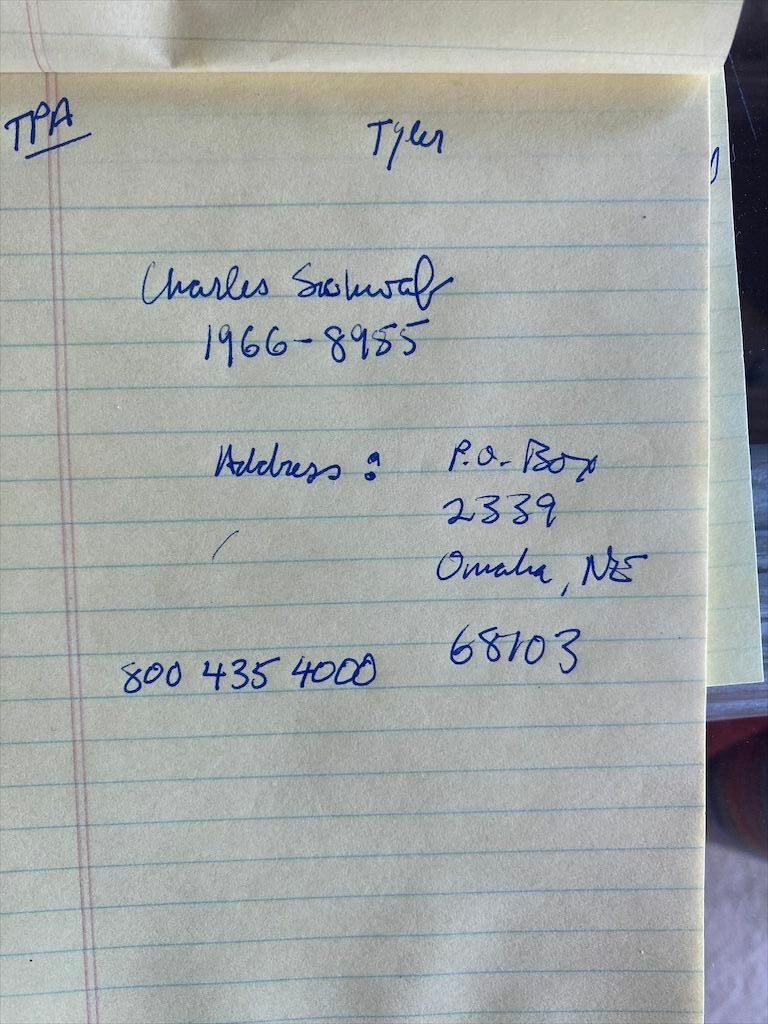 TPA
Tyler
Charles Schwab
1966-8985
Address : P.O. Box
2339
Omaha, NE
68103
800 435 4000